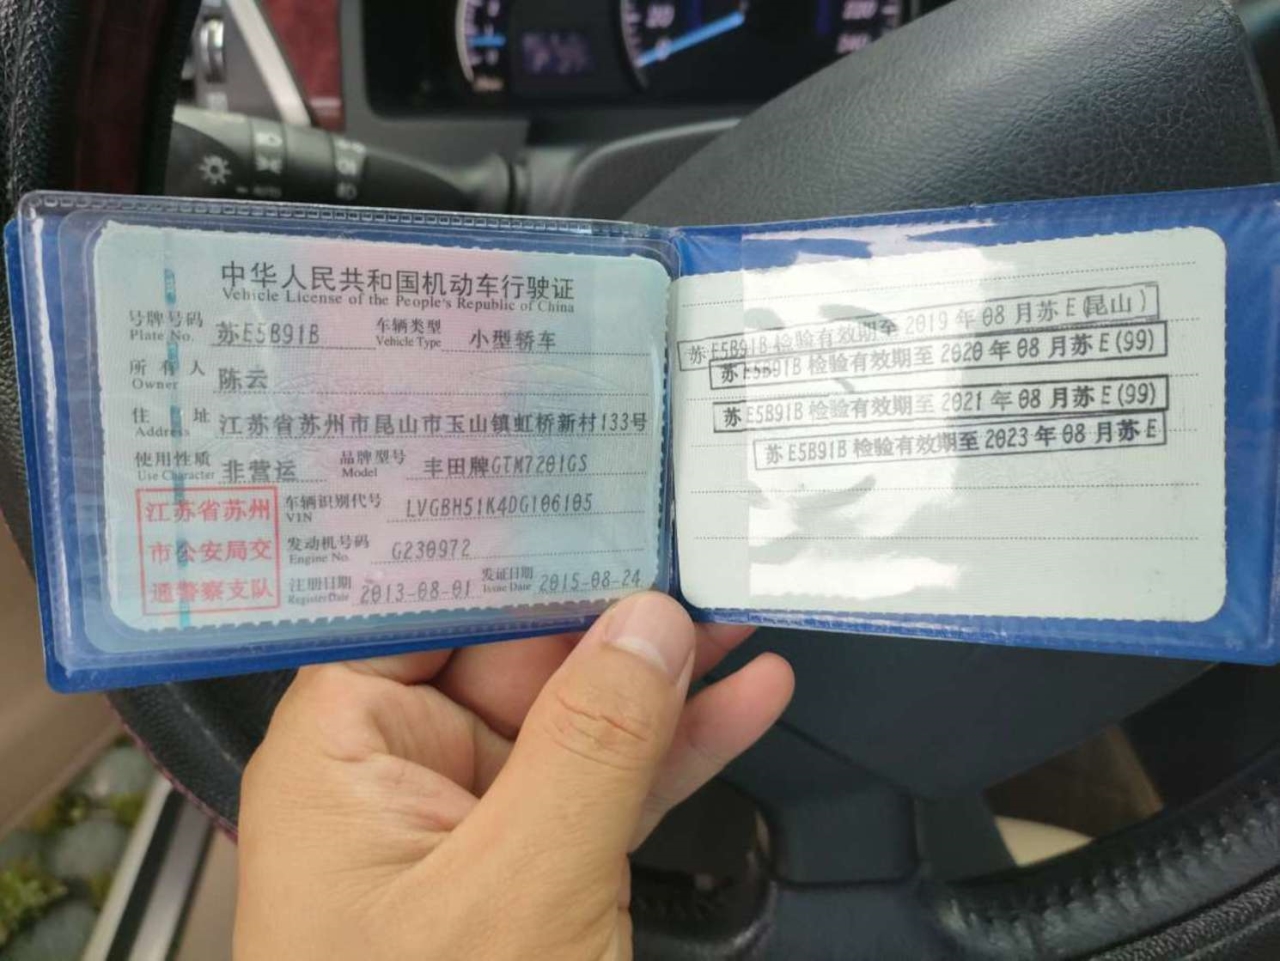 中华人民共和国机动车行驶证
Vehicle License of the People's Republic of China
号牌号码 苏E5B91B 车辆类型 小型轿车
Plate No. Vehicle Type
所有人 陈云
Owner
住址 江苏省苏州市昆山市玉山镇虹桥新村133号
Address
使用性质 非营运 品牌型号 丰田牌GTM7201GS
Use Character Model
江苏省苏州
市公安局交
通警察支队
车辆识别代号 LVGBH51K4DG106105
VIN
发动机号码 G230972
Engine No.
注册日期 2013-08-01 发证日期 2015-08-24
Register Date Issue Date
苏E5B91B 检验有效期至 2019 年 08 月苏E(昆山)
苏E5B91B 检验有效期至 2020 年 08 月苏E(99)
苏E5B91B 检验有效期至 2021 年 08 月苏E(99)
苏E5B91B 检验有效期至 2023 年 08 月苏E